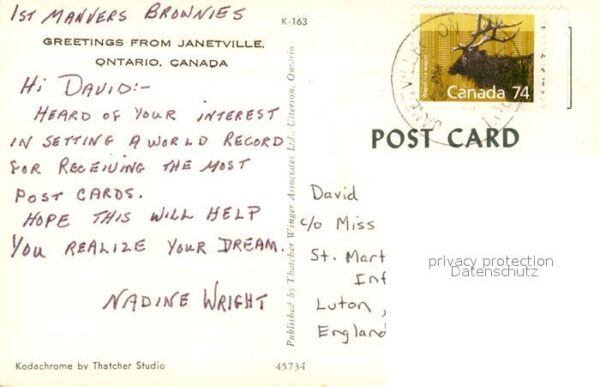 1ST MANVERS BROWNIES
K-163
GREETINGS FROM JANETVILLE,
ONTARIO, CANADA
HI DAVID:-
HEARD OF YOUR INTEREST
IN SETTING A WORLD RECORD
FOR RECEIVING THE MOST
POST CARDS.
HOPE THIS WILL HELP
YOU REALIZE YOUR DREAM.
NADINE WRIGHT
Kodachrome by Thatcher Studio
45734
Published by Thatcher Winger Associates Ltd., Utterson, Ontario
JANETVILLE ON
Canada 74
POST CARD
David
c/o Miss
St. Mart
Inf
Luton,
England
privacy protection
Datenschutz